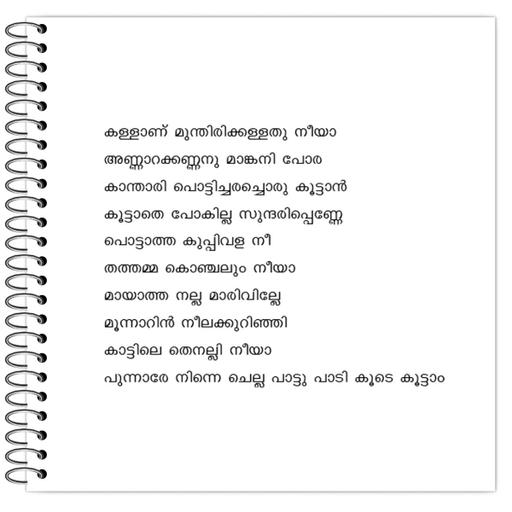 കള്ളാണ് മുന്തിരിക്കള്ളതു നീയാ
അണ്ണാറക്കണ്ണനു മാങ്കനി പോര
കാന്താരി പൊട്ടിച്ചരച്ചൊരു കൂട്ടാൻ
കൂട്ടാതെ പോകില്ല സുന്ദരിപ്പെണ്ണേ
പൊട്ടാത്ത കുപ്പിവള നീ
തത്തമ്മ കൊഞ്ചലും നീയാ
മായാത്ത നല്ല മാരിവില്ലേ
മൂന്നാറിൻ നീലക്കുറിഞ്ഞി
കാട്ടിലെ തെനല്ലി നീയാ
പുന്നാരേ നിന്നെ ചെല്ല പാട്ടു പാടി കൂടെ കൂട്ടാം